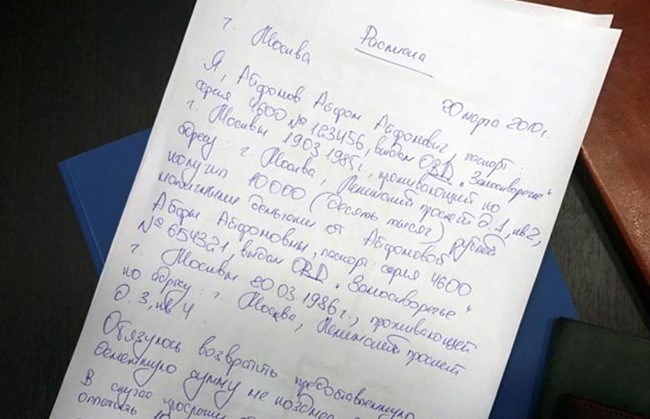 Расписка
г. Москва
20 марта 2010г.
Я, Абфомов Абфом Абфомович, паспорт:
серия 4600 № 123456, выдан ОВД "Замоскворечье"
г. Москвы 19.03 1985г., проживающий по
адресу: г. Москва, Ленинский проспект д. 1, кв 2,
получил 10000 (десять тысяч) рублей
наличными деньгами от Абфомовой
Абфы Абфомовны, паспорт: серия 4600
№ 654321, выдан ОВД "Замоскворечье"
г. Москвы 20 03 1986 г., проживающей
по адресу: г. Москва, Ленинский проспект
д. 3, кв 4
Обязуюсь возвратить предоставленную
денежную сумму не позднее
В случае просрочки